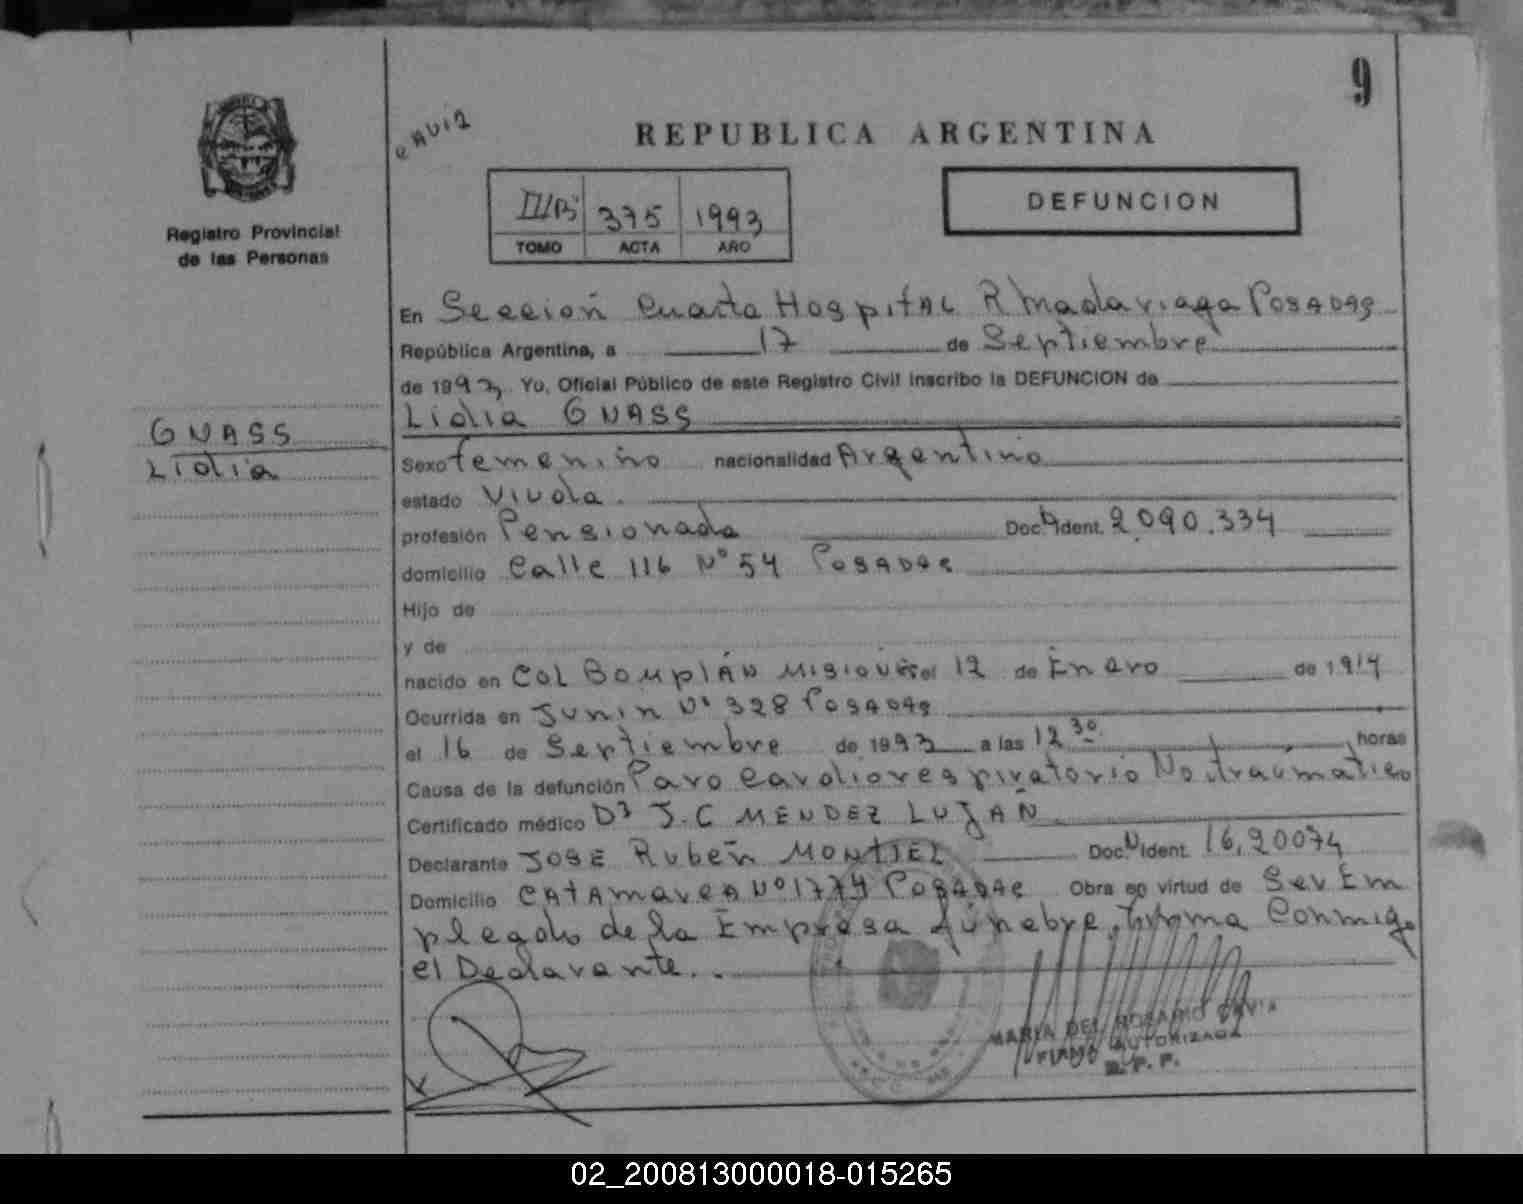 9
REPUBLICA ARGENTINA
DEFUNCION
375 1993
TOMO ACTA AÑO
Registro Provincial
de las Personas
GNASS
Lidia
En Sección Cuarta Hospital R Madariaga Posadas
República Argentina, a 17 de Septiembre
de 1993 Yo, Oficial Público de este Registro Civil inscribo la DEFUNCION de
Lidia GNASS
Sexo femenino nacionalidad Argentina
estado Viuda.
profesión Pensionada Doc. Ident. 2.090.334
domicilio Calle 116 Nº 54 Posadas
Hijo de
y de
nacido en Col Bomplán Misiones el 12 de Enero de 1914
Ocurrida en Junin Nº 328 Posadas
el 16 de Septiembre de 1993 a las 12 30 horas
Causa de la defunción Paro Cardiorespiratorio No traumatico
Certificado médico Dr J.C MENDEZ LUJAN
Declarante JOSE Rubén MONTIEL Doc. Ident. 16.20074
Domicilio Catamarca Nº 1774 Posadas Obra en virtud de Ser Em
plegado de la Empresa fúnebre, firma Conmigo
el Declarante..
MARIA DEL ROSARIO
FIRMA AUTORIZADA
R.P.P.
02_200813000018-015265